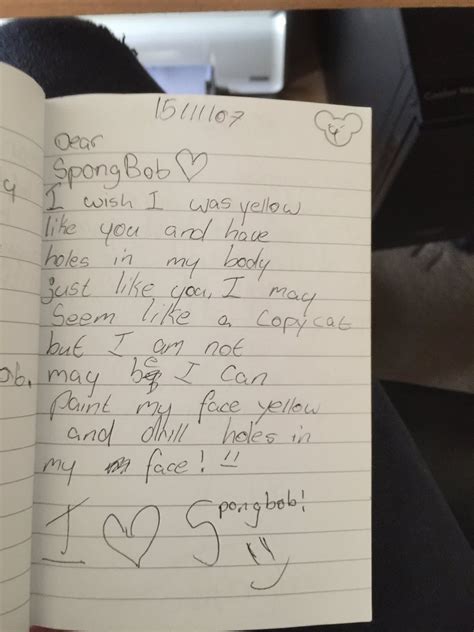 15/11/07
Dear
SpongBob ♡
I wish I was yellow
like you and have
holes in my body
just like you, I may
Seem like a copycat
but I am not
may be I can
paint my face yellow
and drill holes in
my face! !!
I ♡ Spongbob!
ob.